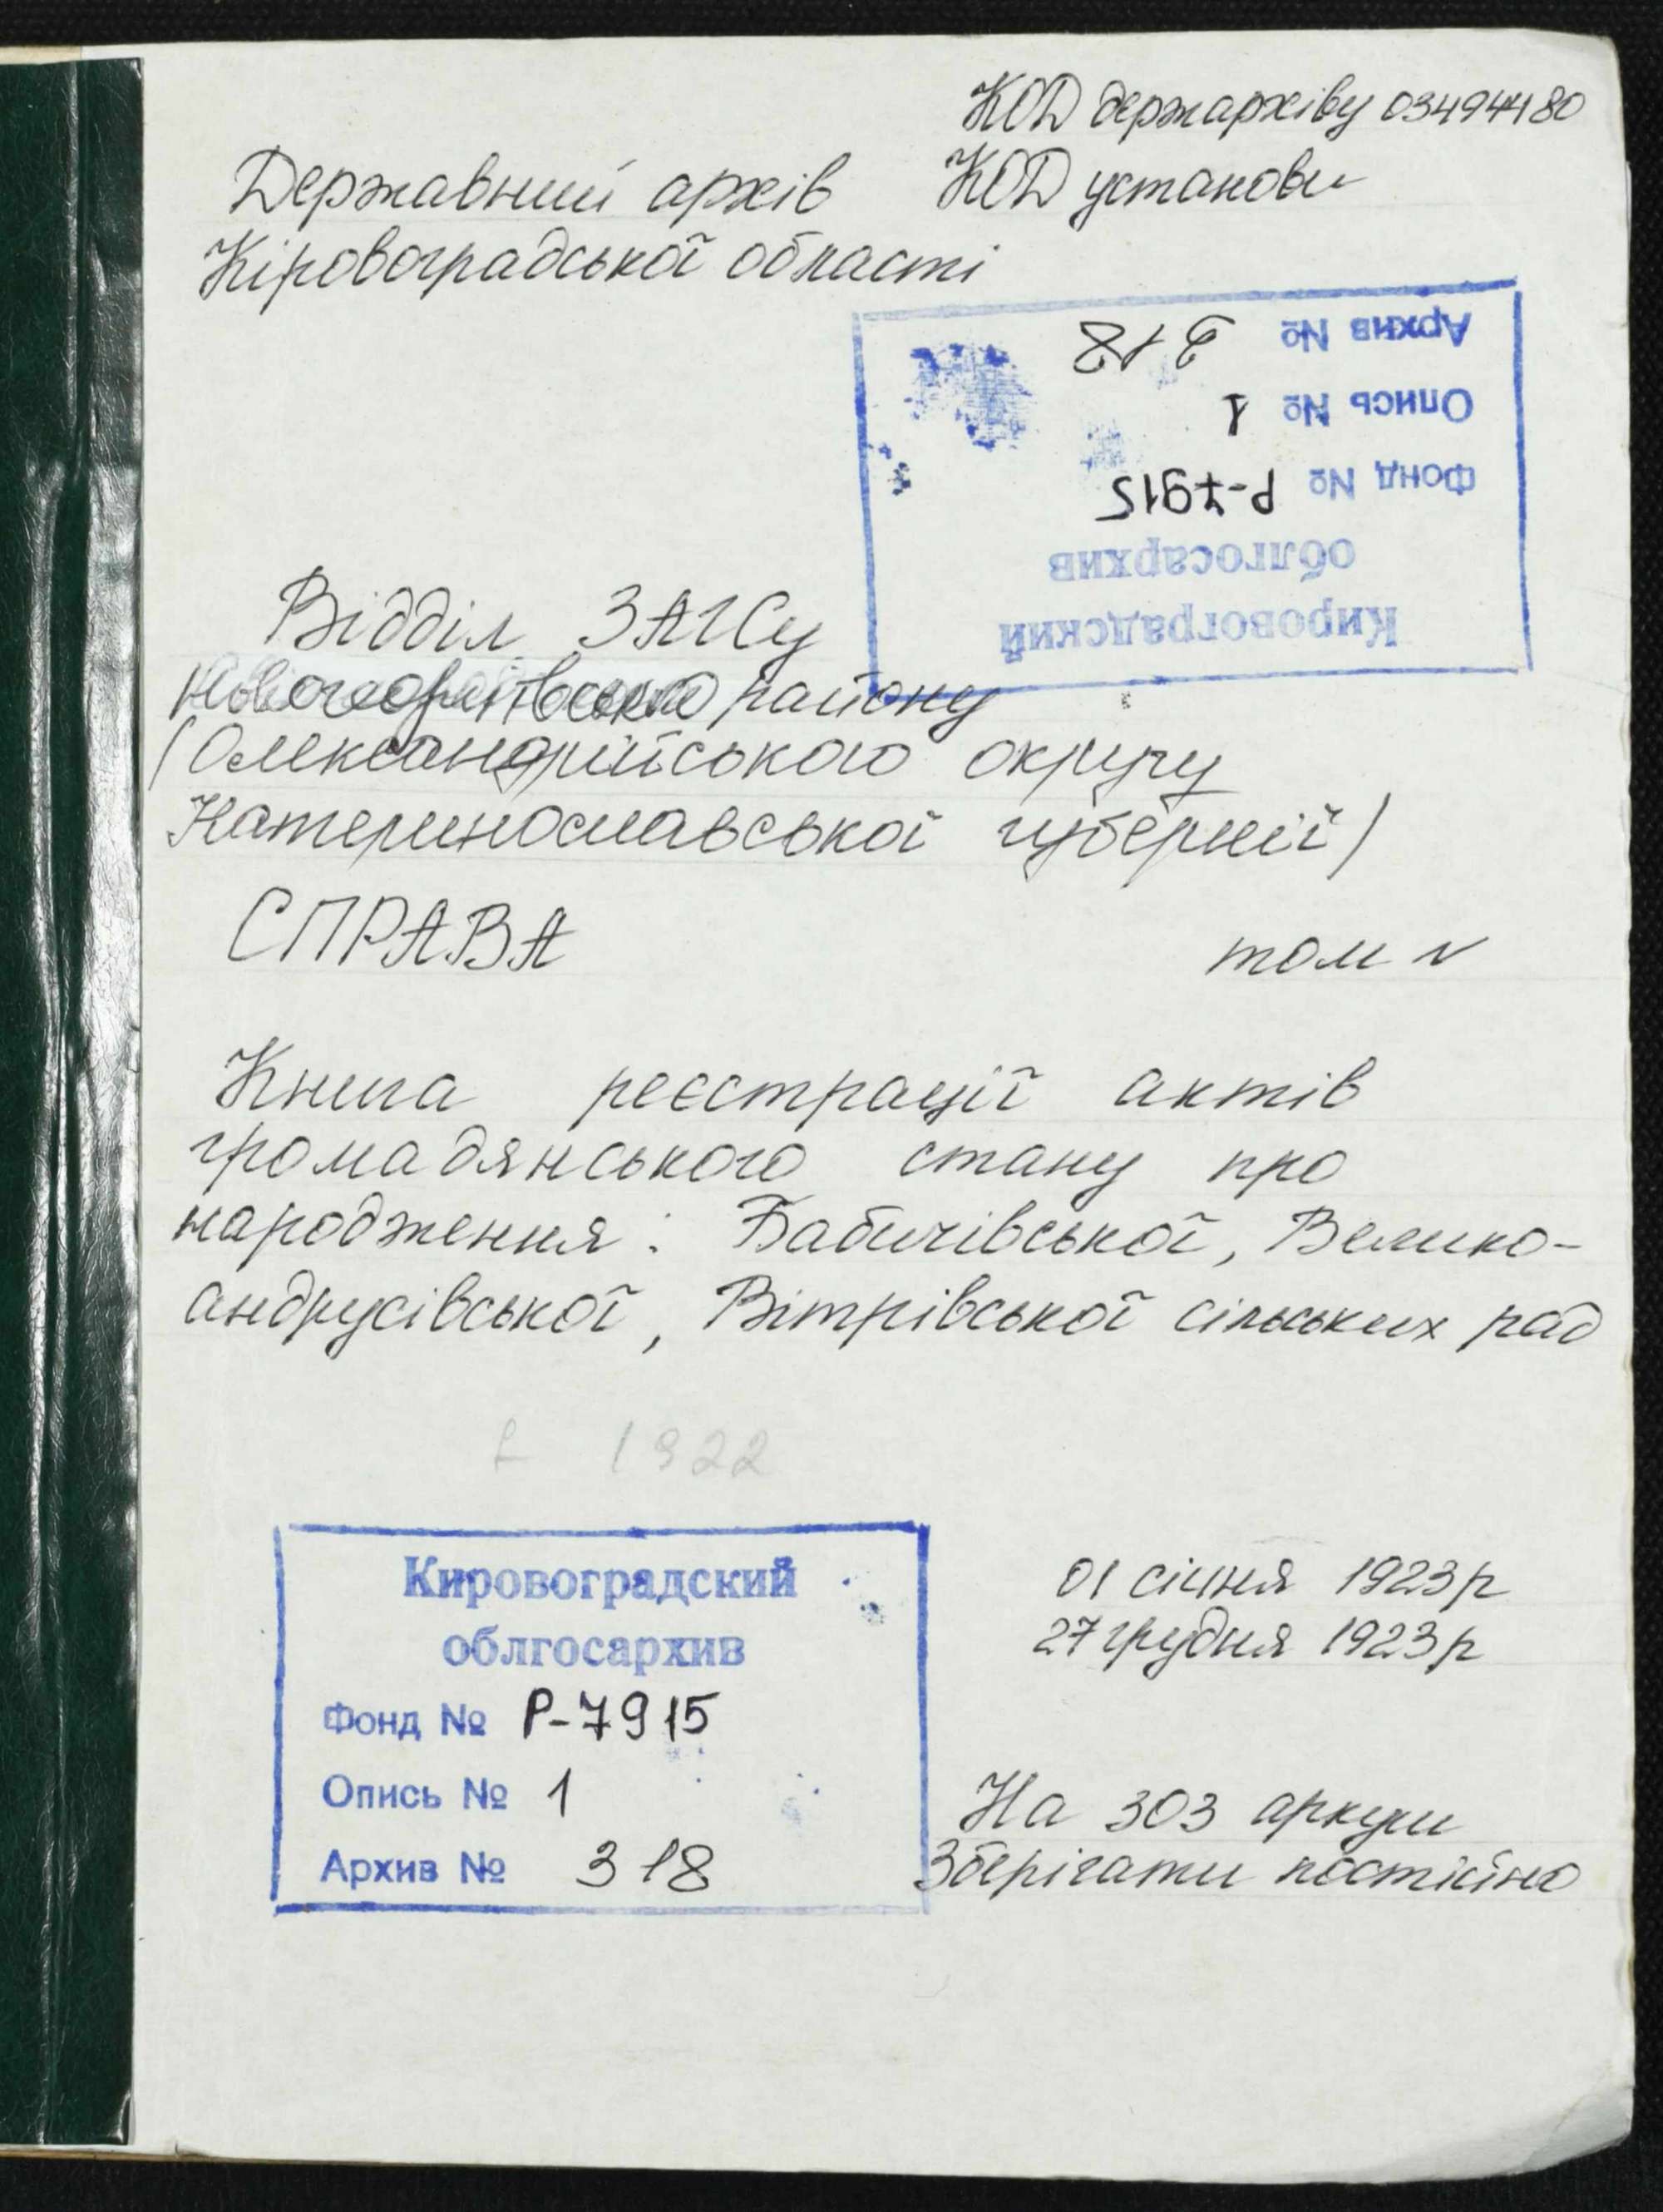 КОД держархіву 03494480
Державний архів КОД установи
Кіровоградської області
Кировоградский
облгосархив
Фонд № Р-7915
Опись № 1
Архив № 318
Відділ ЗАГСу
Новогеоргіївського району
(Олександрійського округу
Катеринославської губернії)
СПРАВА том №
Книга реєстрації актів
громадянського стану про
народження: Бабичівської, Велико-
андрусівської, Вітрівської сільських рад
1922
01 січня 1923р
27 грудня 1923р
Кировоградский
облгосархив
Фонд № Р-7915
Опись № 1
Архив № 318
На 303 аркуши
Зберігати постійно